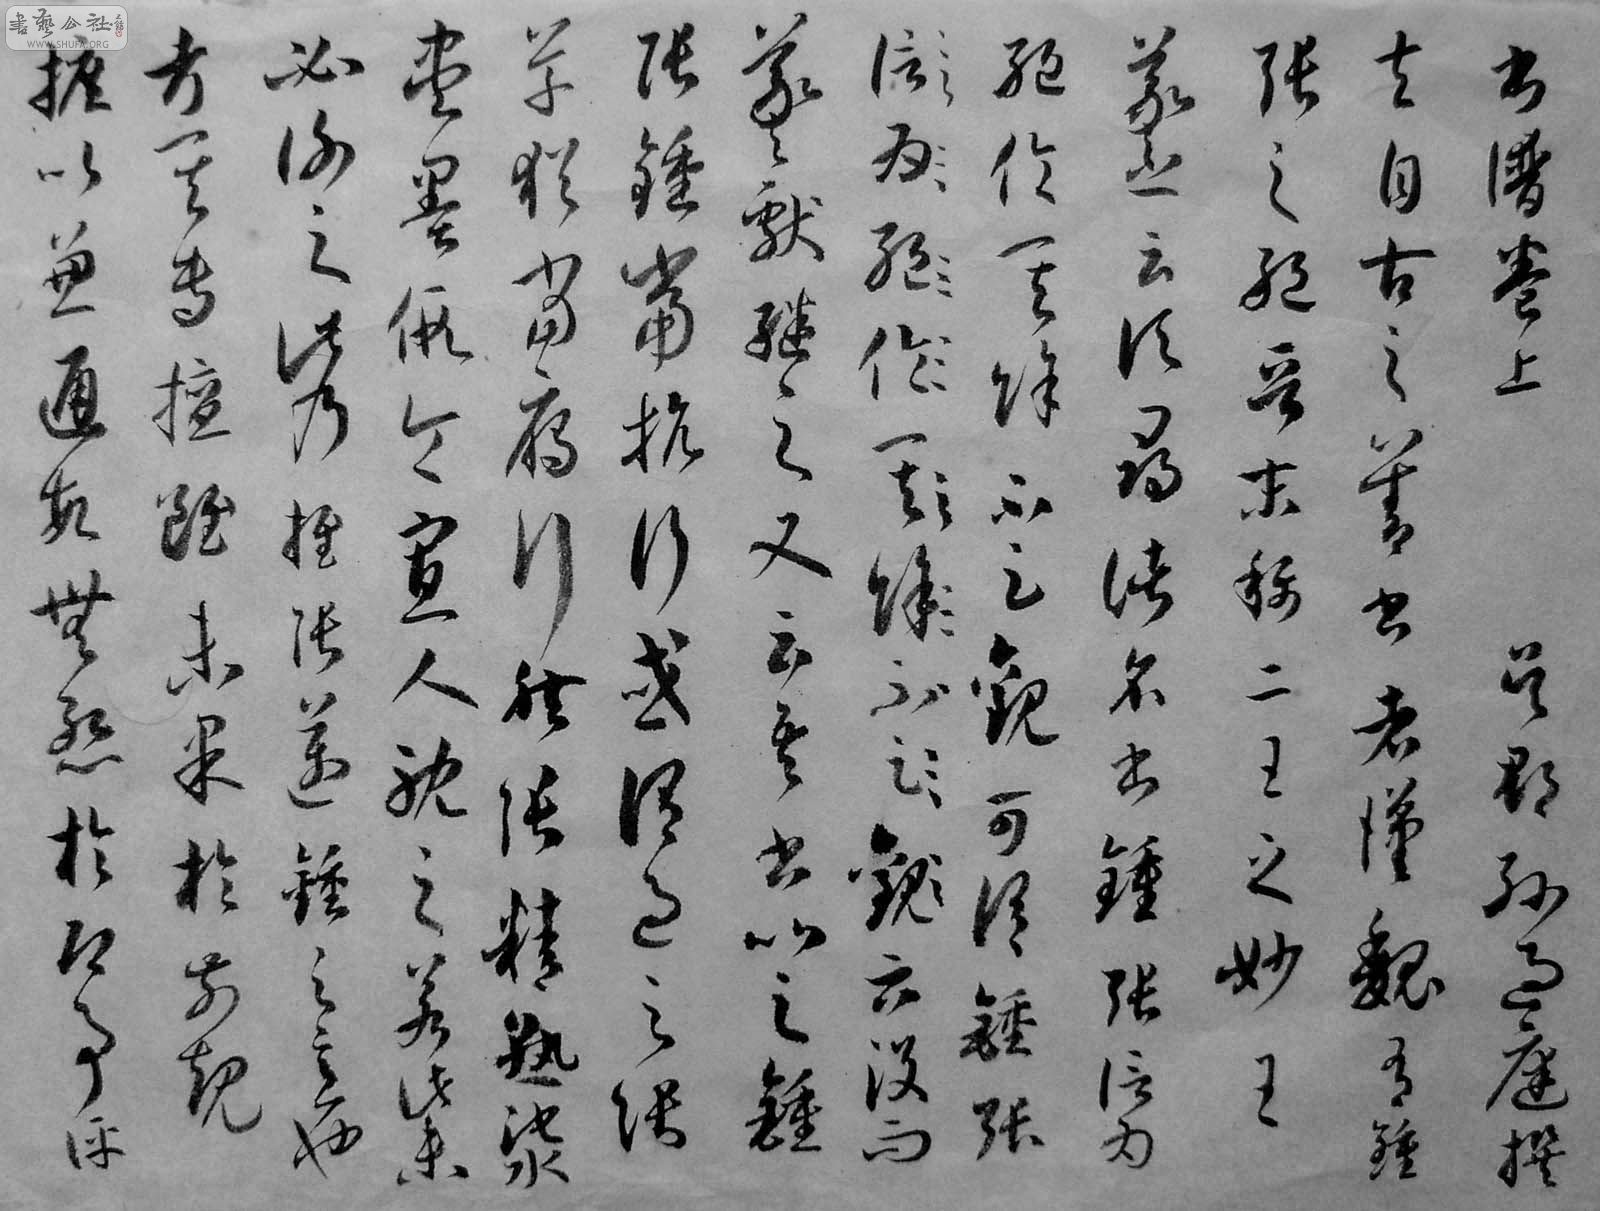 書譜卷上 吳郡孫過庭撰
夫自古之善書者漢魏有鍾
張之絕晉末稱二王之妙王
羲之云頃尋諸名書鍾張信為
絕倫其餘不足觀可謂鍾張
信為絕倫其餘不足觀云沒而
羲獻繼之又云吾書比之鍾
張鍾當抗行或謂過之張
草猶當雁行然張精熟池水
盡墨假令寡人耽之若此未
必謝之此乃推張邁鍾之意也
考其專擅雖未果於前規
摭以兼通故無慚於即事評
書藝公社
WWW.SHUFA.ORG